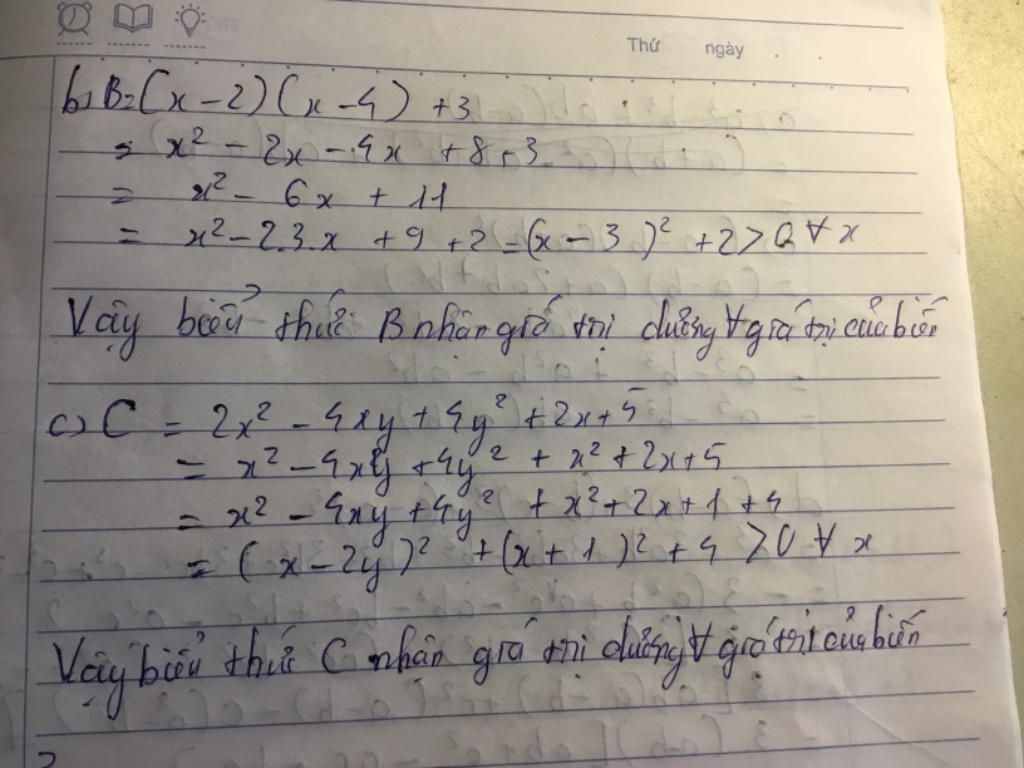 Thứ ngày .
b, B = (x – 2) (x – 4) + 3
= x² – 2x – 4x + 8 + 3
= x² – 6x + 11
= x² – 2.3.x + 9 + 2 = (x – 3)² + 2 > 0 ∀ x
Vậy biểu thức B nhận giá trị dương ∀ giá trị của biến
c) C = 2x² – 4xy + 4y² + 2x + 5
= x² – 4xy + 4y² + x² + 2x + 5
= x² – 4xy + 4y² + x² + 2x + 1 + 4
= (x – 2y)² + (x + 1)² + 4 > 0 ∀ x
Vậy biểu thức C nhận giá trị dương ∀ giá trị của biến